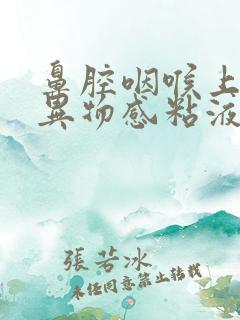 鼻腔咽喉上
異物感粘液
張若冰
未经同意禁止转载